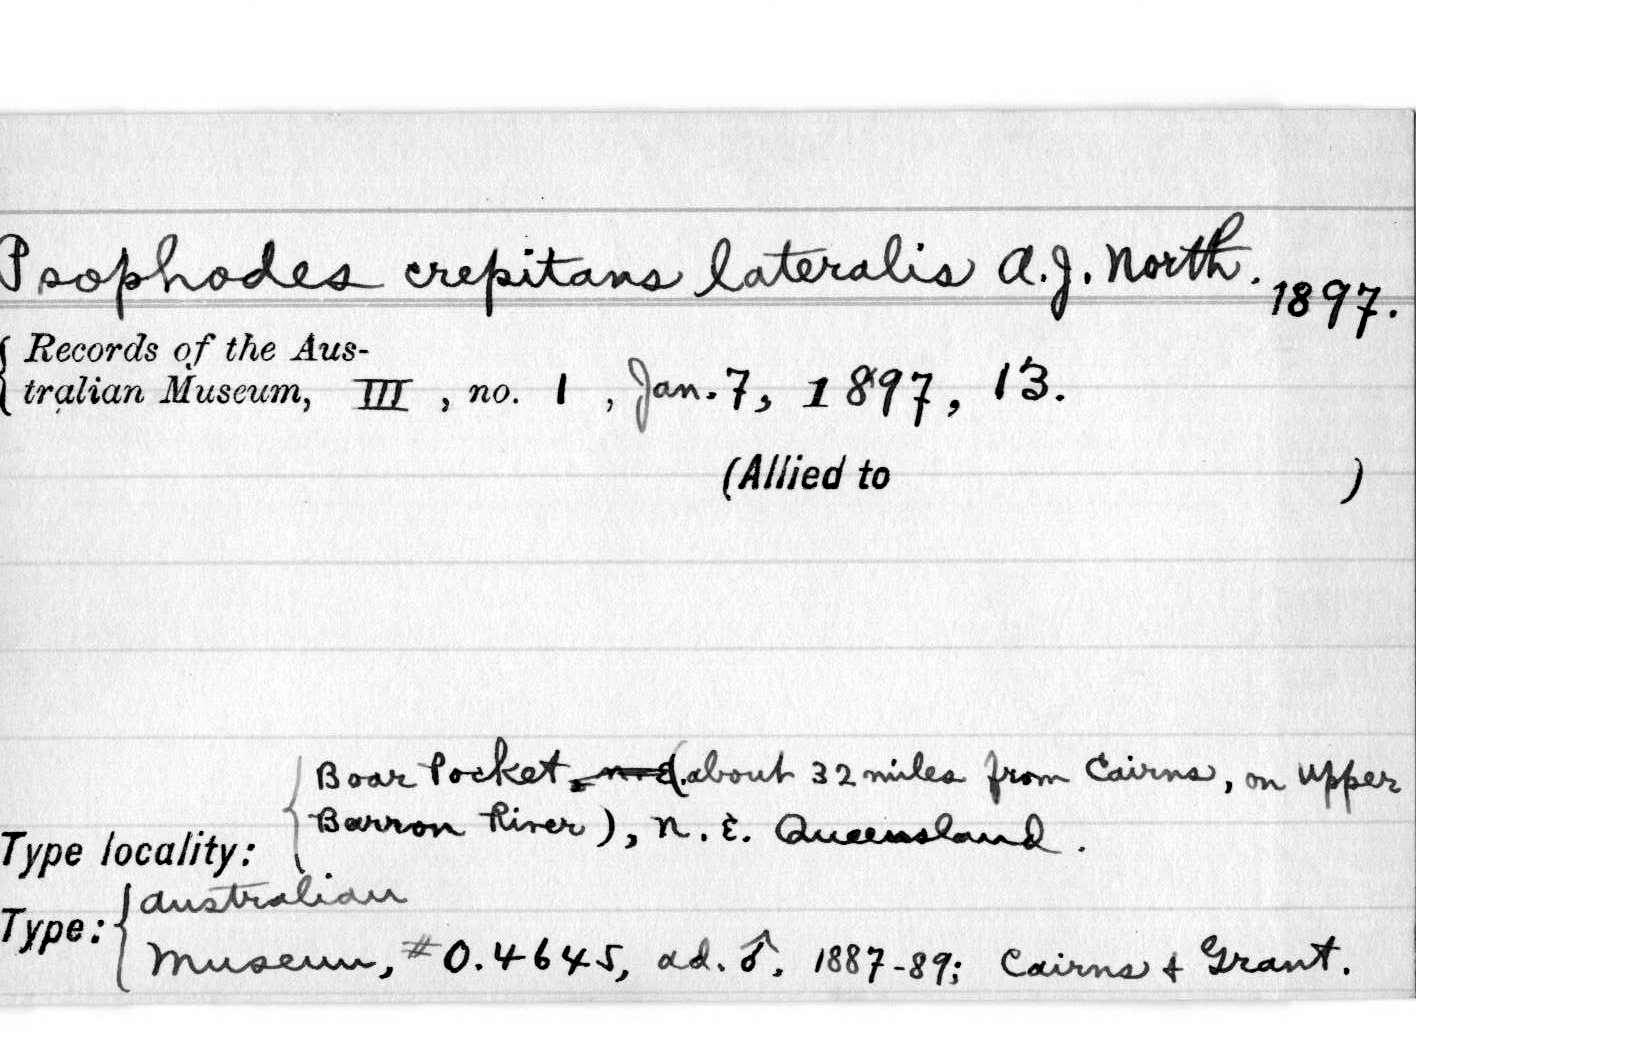 Psophodes crepitans lateralis A.J. North. 1897.
Records of the Aus-
tralian Museum, III, no. 1, Jan. 7, 1897, 13.
(Allied to )
Boar Pocket, N.E. (about 32 miles from Cairns, on Upper
Barron River), N.E. Queensland.
Type locality:
Australian
Type:
Museum, #O.4645, ad. ♂, 1887-89; Cairns & Grant.